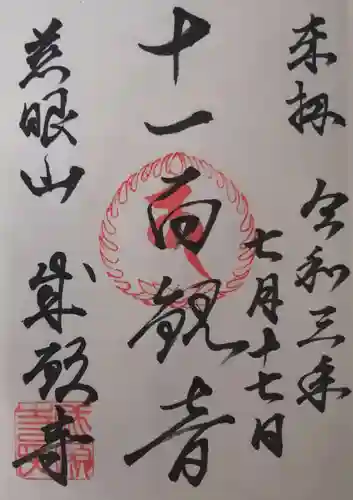 来拝 令和三年
七月十七日
十一面観音
慈眼山 成願寺